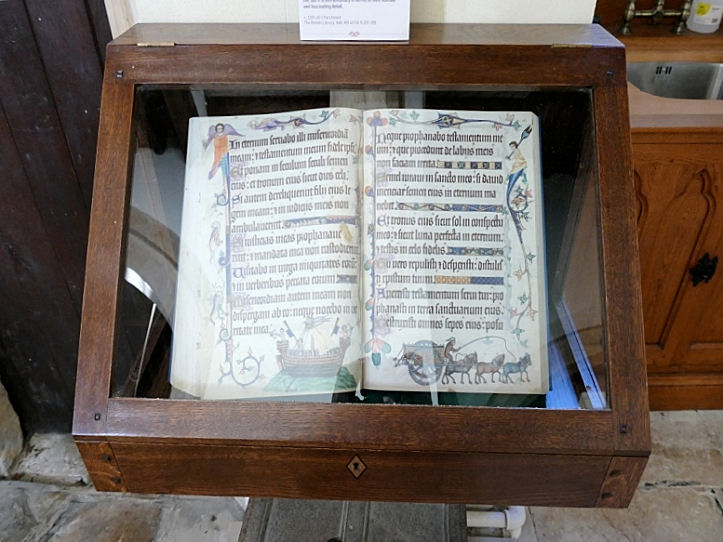 and fascinating detail.
The British Library, Add. MS 42130
In eternum seruabo illi misericordiā
meam: ⁊ testamentum meum fidele ipsi.
Et ponam in seculum seculi semen
eius: et tronum eius sicut dies celi.
Si autem dereliquerint filii eius le
gem meam: ⁊ in iudiciis meis non
ambulauerint.
Si iusticias meas prophanauerīt
⁊ mandata mea non custodierint
Uisitabo in uirga iniquitates eorū
⁊ in uerberibus peccata eorum
Misericordiam autem meam non
dispergam ab eo: neque nocebo in
ueritate mea
Neque prophanabo testamentum me
um: ⁊ que procedunt de labiis meis
non faciam irrita.
Semel iuraui in sancto meo: si dauid
menciar semen eius in eternum ma
nebit.
Et tronus eius sicut sol in conspectu
meo: ⁊ sicut luna perfecta in eternum.
⁊ testis in celo fidelis
Tu uero repulisti ⁊ despexisti: distulisti
xp̄istum tuum
Auertisti testamentum serui tui: pro
phanasti in terra sanctuarium eius.
Destruxisti omnes sepes eius: posu